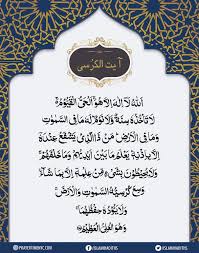 آیت الکرسی
اَللّٰهُ لَاۤ اِلٰهَ اِلَّا هُوَ اَلْحَیُّ الْقَیُّوْمُ
لَا تَاْخُذُهٗ سِنَةٌ وَّلَا نَوْمٌ لَهٗ مَا فِی السَّمٰوٰتِ
وَمَا فِی الْاَرْضِ مَنْ ذَا الَّذِیْ یَشْفَعُ عِنْدَهٗ
اِلَّا بِاِذْنِهٖ یَعْلَمُ مَا بَیْنَ اَیْدِیْهِمْ وَمَا خَلْفَهُمْ
وَلَا یُحِیْطُوْنَ بِشَیْءٍ مِّنْ عِلْمِهٖ اِلَّا بِمَا شَآءَ
وَسِعَ كُرْسِیُّهُ السَّمٰوٰتِ وَالْاَرْضَ
وَلَا یَئُوْدُهٗ حِفْظُهُمَا
وَهُوَ الْعَلِیُّ الْعَظِیْمُ
/ISLAMHADITHS /ISLAMHADITHS